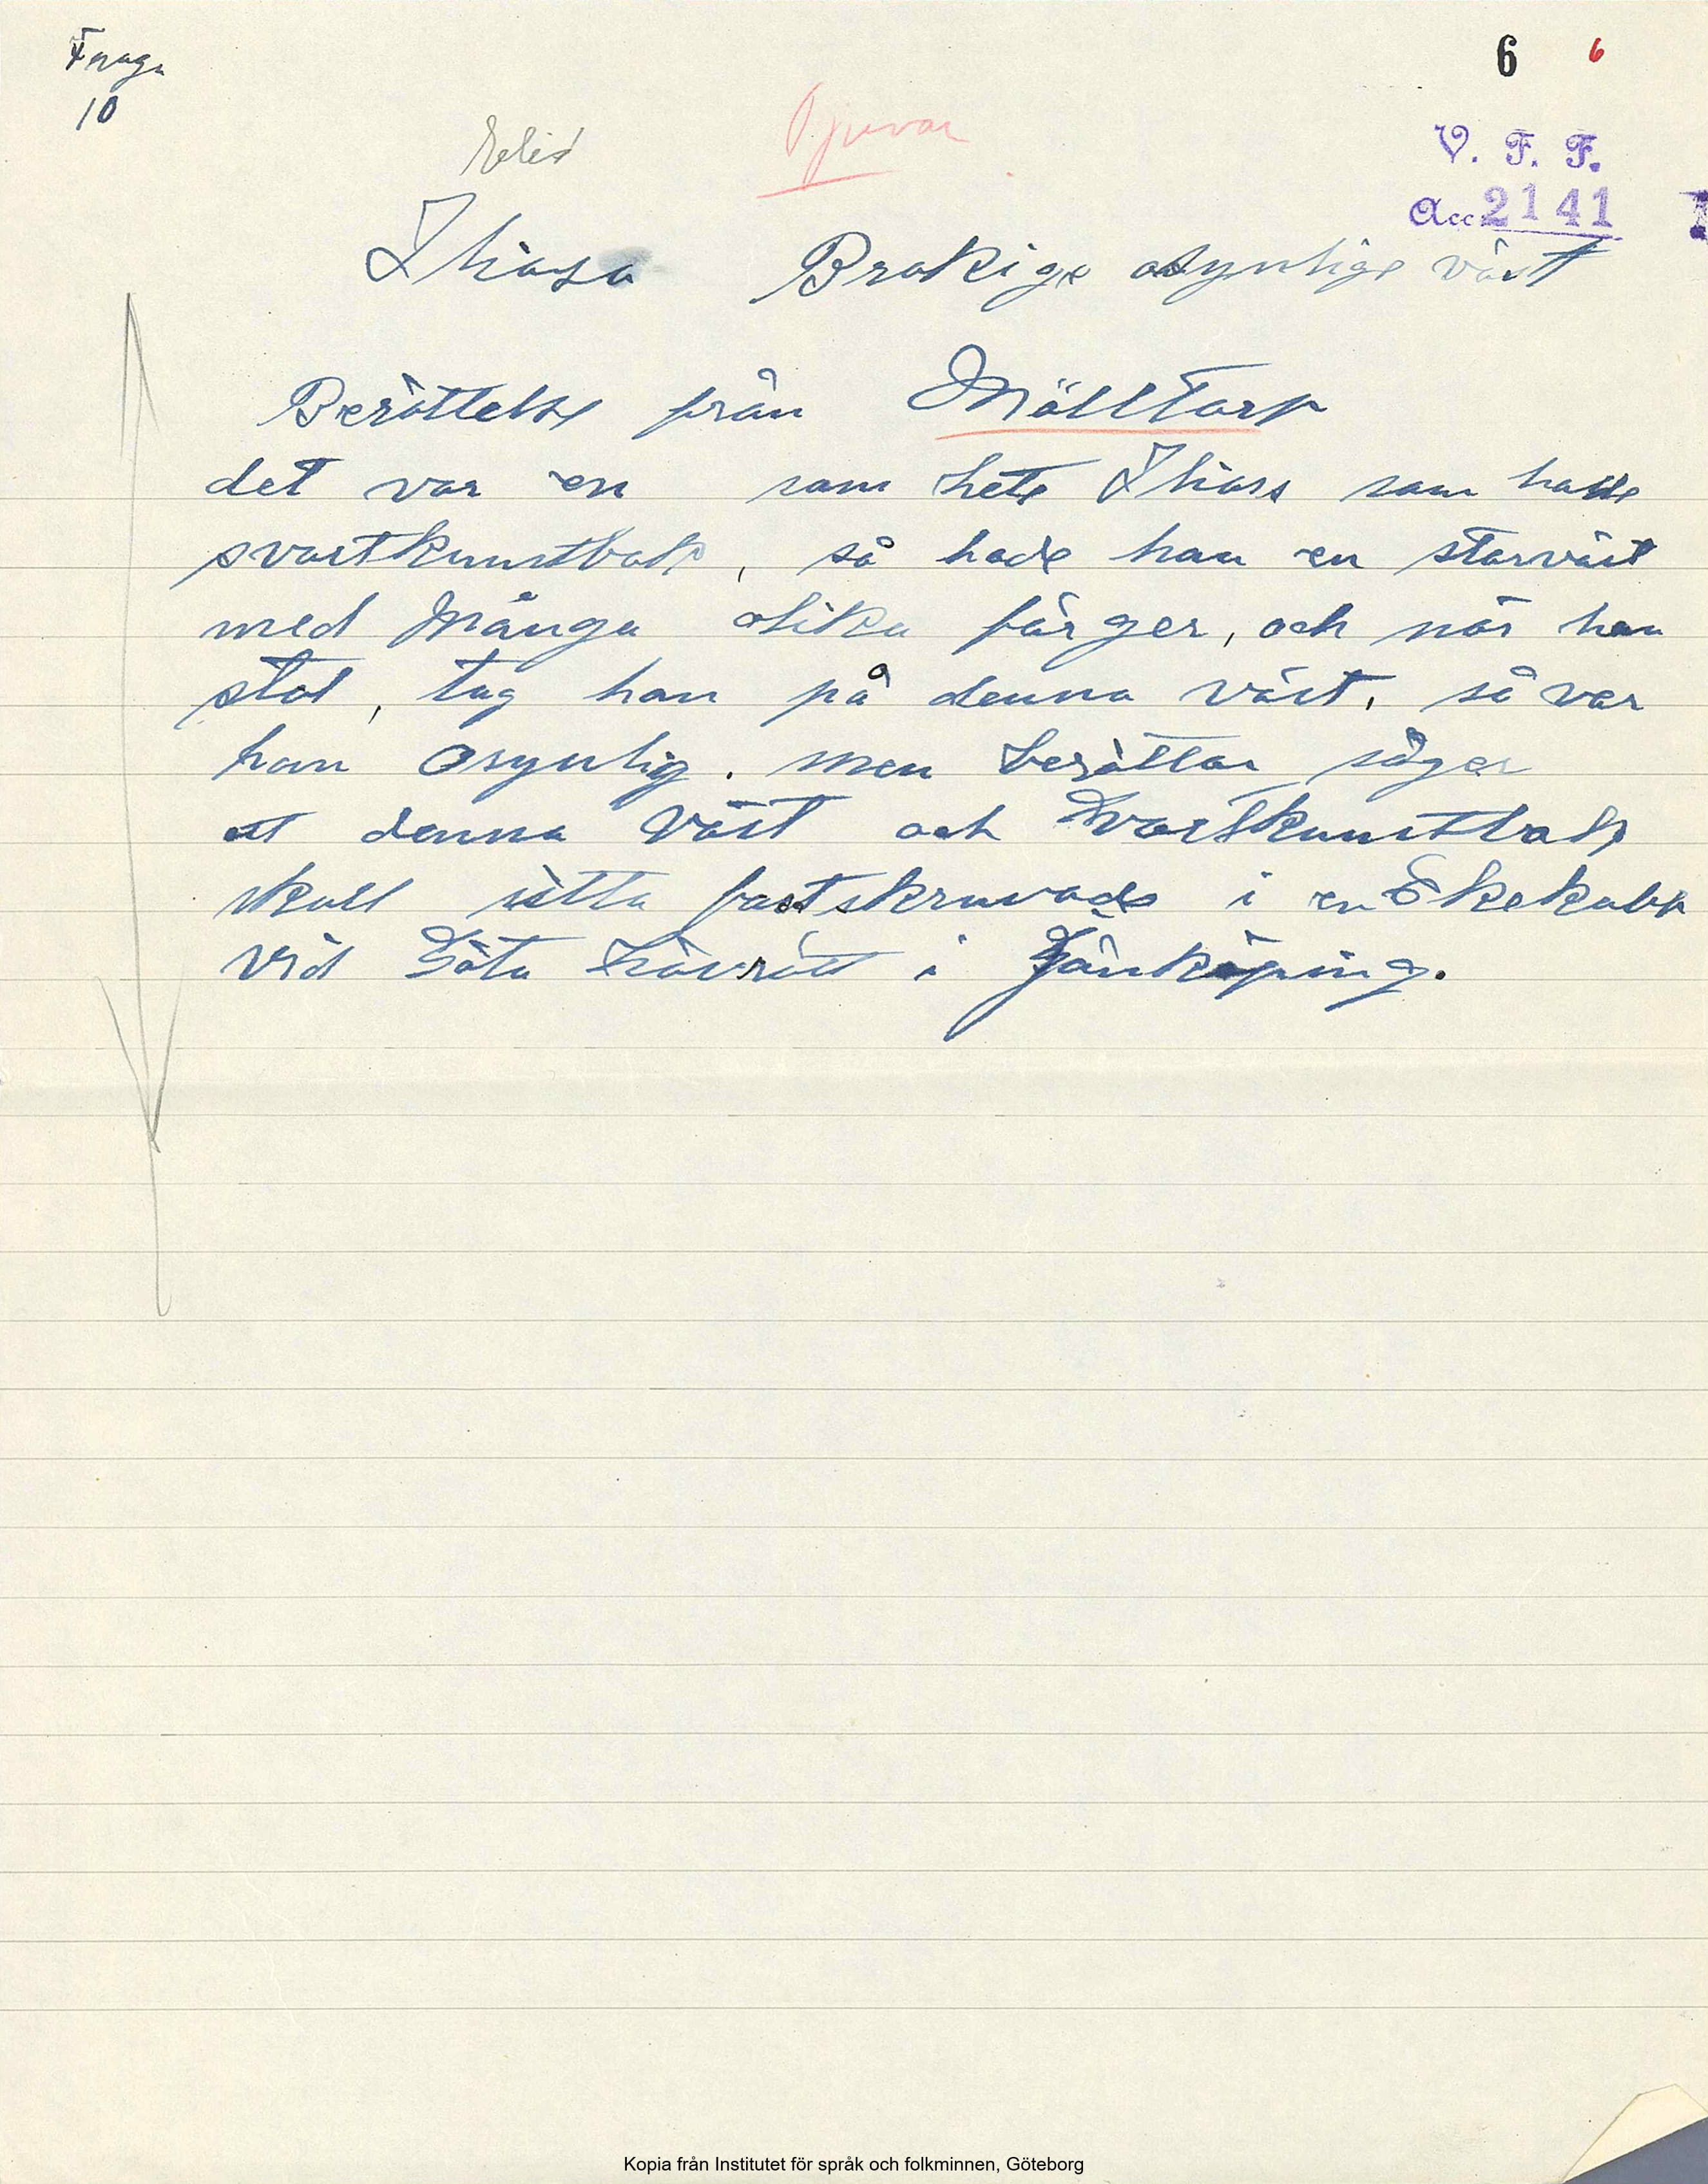 Fraga
10
6 6
Tjuvar
V. F. F.
Acc 2141
Brokige osynlige väst
Berättelse från Mölltorp
det var en som hete som hade
svartkunstbok, så hade han en storväst
med Många olika färger, och når han
stal, tog han på denna väst, så var
han Osynlig. men berättar säger
at denna Väst och Svartkunstbok
skall sitta fastskruvade i en Ekekubb
vid Göta Håvrätt i Jönköping.
Kopia från Institutet för språk och folkminnen, Göteborg